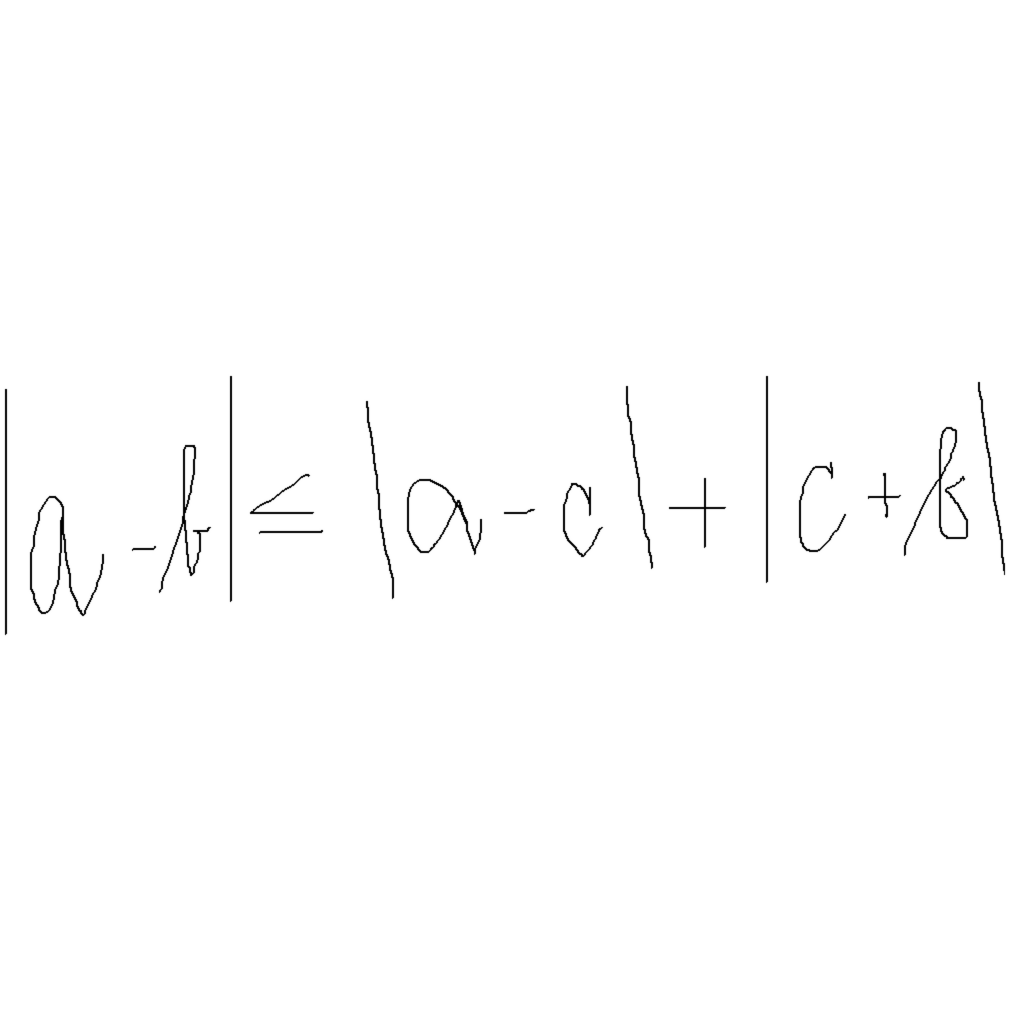 |a-b| ≤ |a-c| + |c+b|